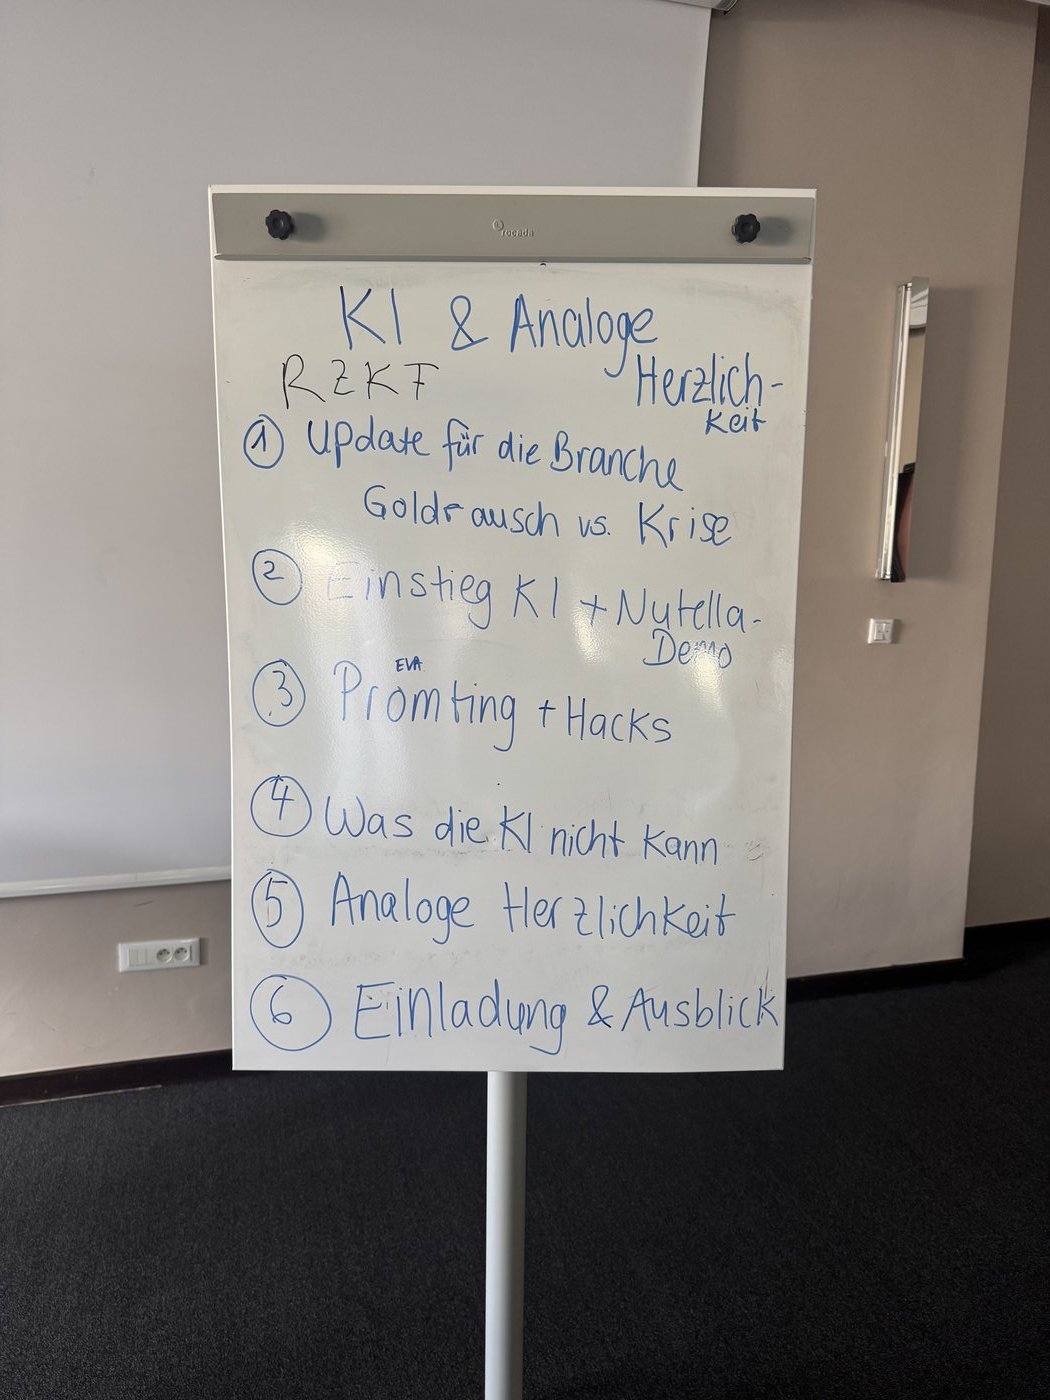 rocada
KI & Analoge
RZKF Herzlich-
keit
1 Update für die Branche
Goldrausch vs. Krise
2 Einstieg KI + Nutella-
Demo
EVA
3 Promting + Hacks
4 Was die KI nicht kann
5 Analoge Herzlichkeit
6 Einladung & Ausblick